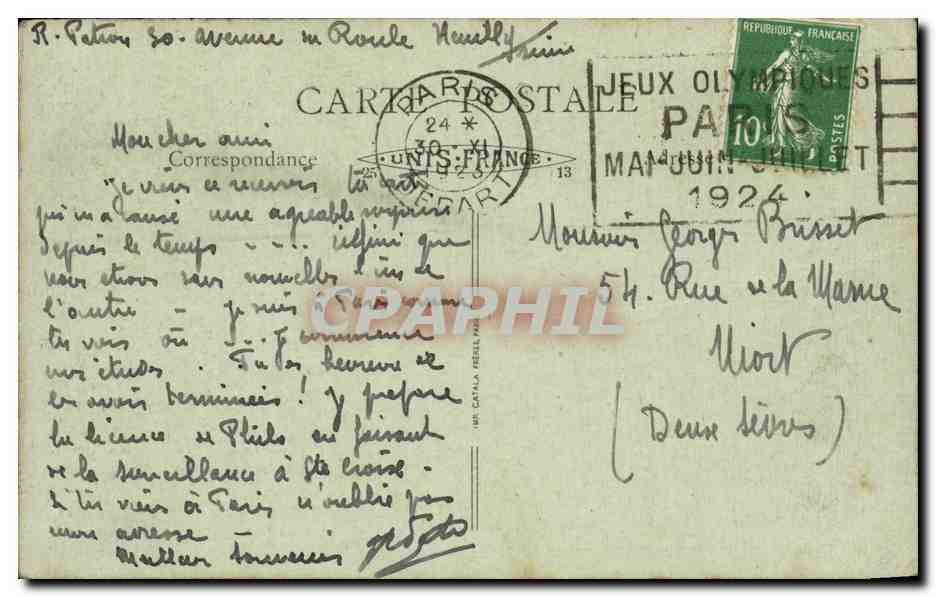 R. Patron 30. avenue du Roule Neuilly
Seine
REPUBLIQUE FRANÇAISE
10
POSTES
CARTE POSTALE
PARIS
24 *
30 - XI
1923
DEPART
JEUX OLYMPIQUES
PARIS
MAI-JUIN-JUILLET
1924.
Correspondance
UNIS-FRANCE
25
13
Adresse
Mon cher ami
Je viens de recevoir ta carte
qui m'a causé une agréable surprise
depuis le temps - - .. que
nous étions sans nouvelles l'un de
l'autre - je suis à Paris comme
tu vois où ... je commence
mes études. Tu es heureux de
les avoir terminées! Je prépare
la licence de Philo en faisant
de la surveillance à Ste Croix -
Si tu viens à Paris n'oublie pas
mon adresse
Meilleur souvenir
Monsieur Georges Brisset
54. Rue de la Marne
Niort
(Deux Sèvres)
IMP. CATALA FRÈRES, PARIS
CPAPHIL